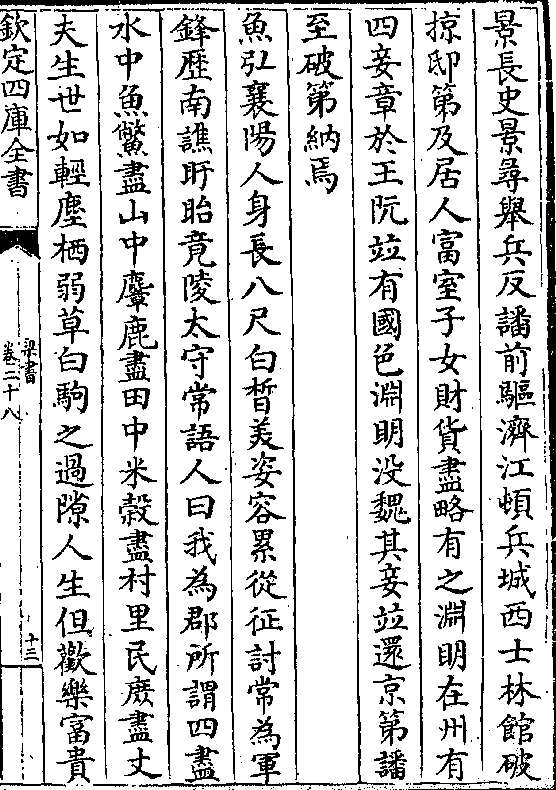 景長史景尋舉兵反譒前驅濟江頓兵城西士林館破
掠邸第及居人富室子女財貨盡略有之淵明在州有
四妾章於王阮竝有國色淵明没魏其妾竝還京第譒
至破第納焉
魚弘襄陽人身長八尺白皙美姿容累從征討常為軍
鋒歷南譙盱眙竟陵太守常語人曰我為郡所謂四盡
水中魚鱉盡山中麞鹿盡田中米穀盡村里民庶盡丈
夫生世如輕塵栖弱草白駒之過隙人生但歡樂富貴
欽定四庫全書
梁書
卷二十八
十三